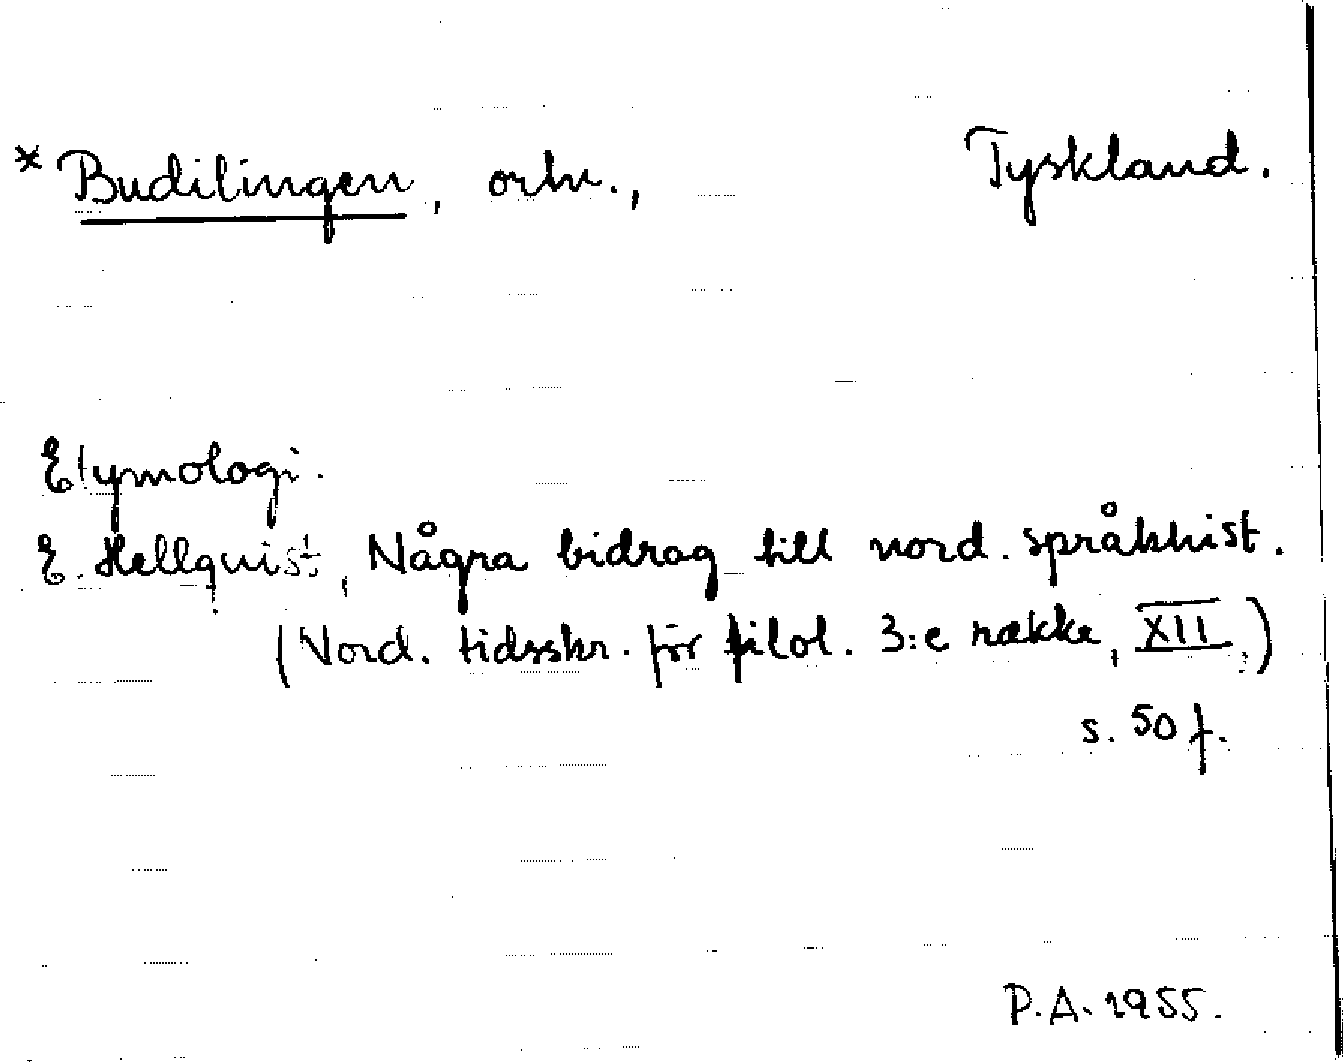 * Budilingen, ortn., Tyskland.
Etymologi.
E. Hellquist, Några bidrag till nord. språkhist.
(Nord. tidsskr. för filol. 3:e række, XII,)
s. 50 f.
P.A. 1955.